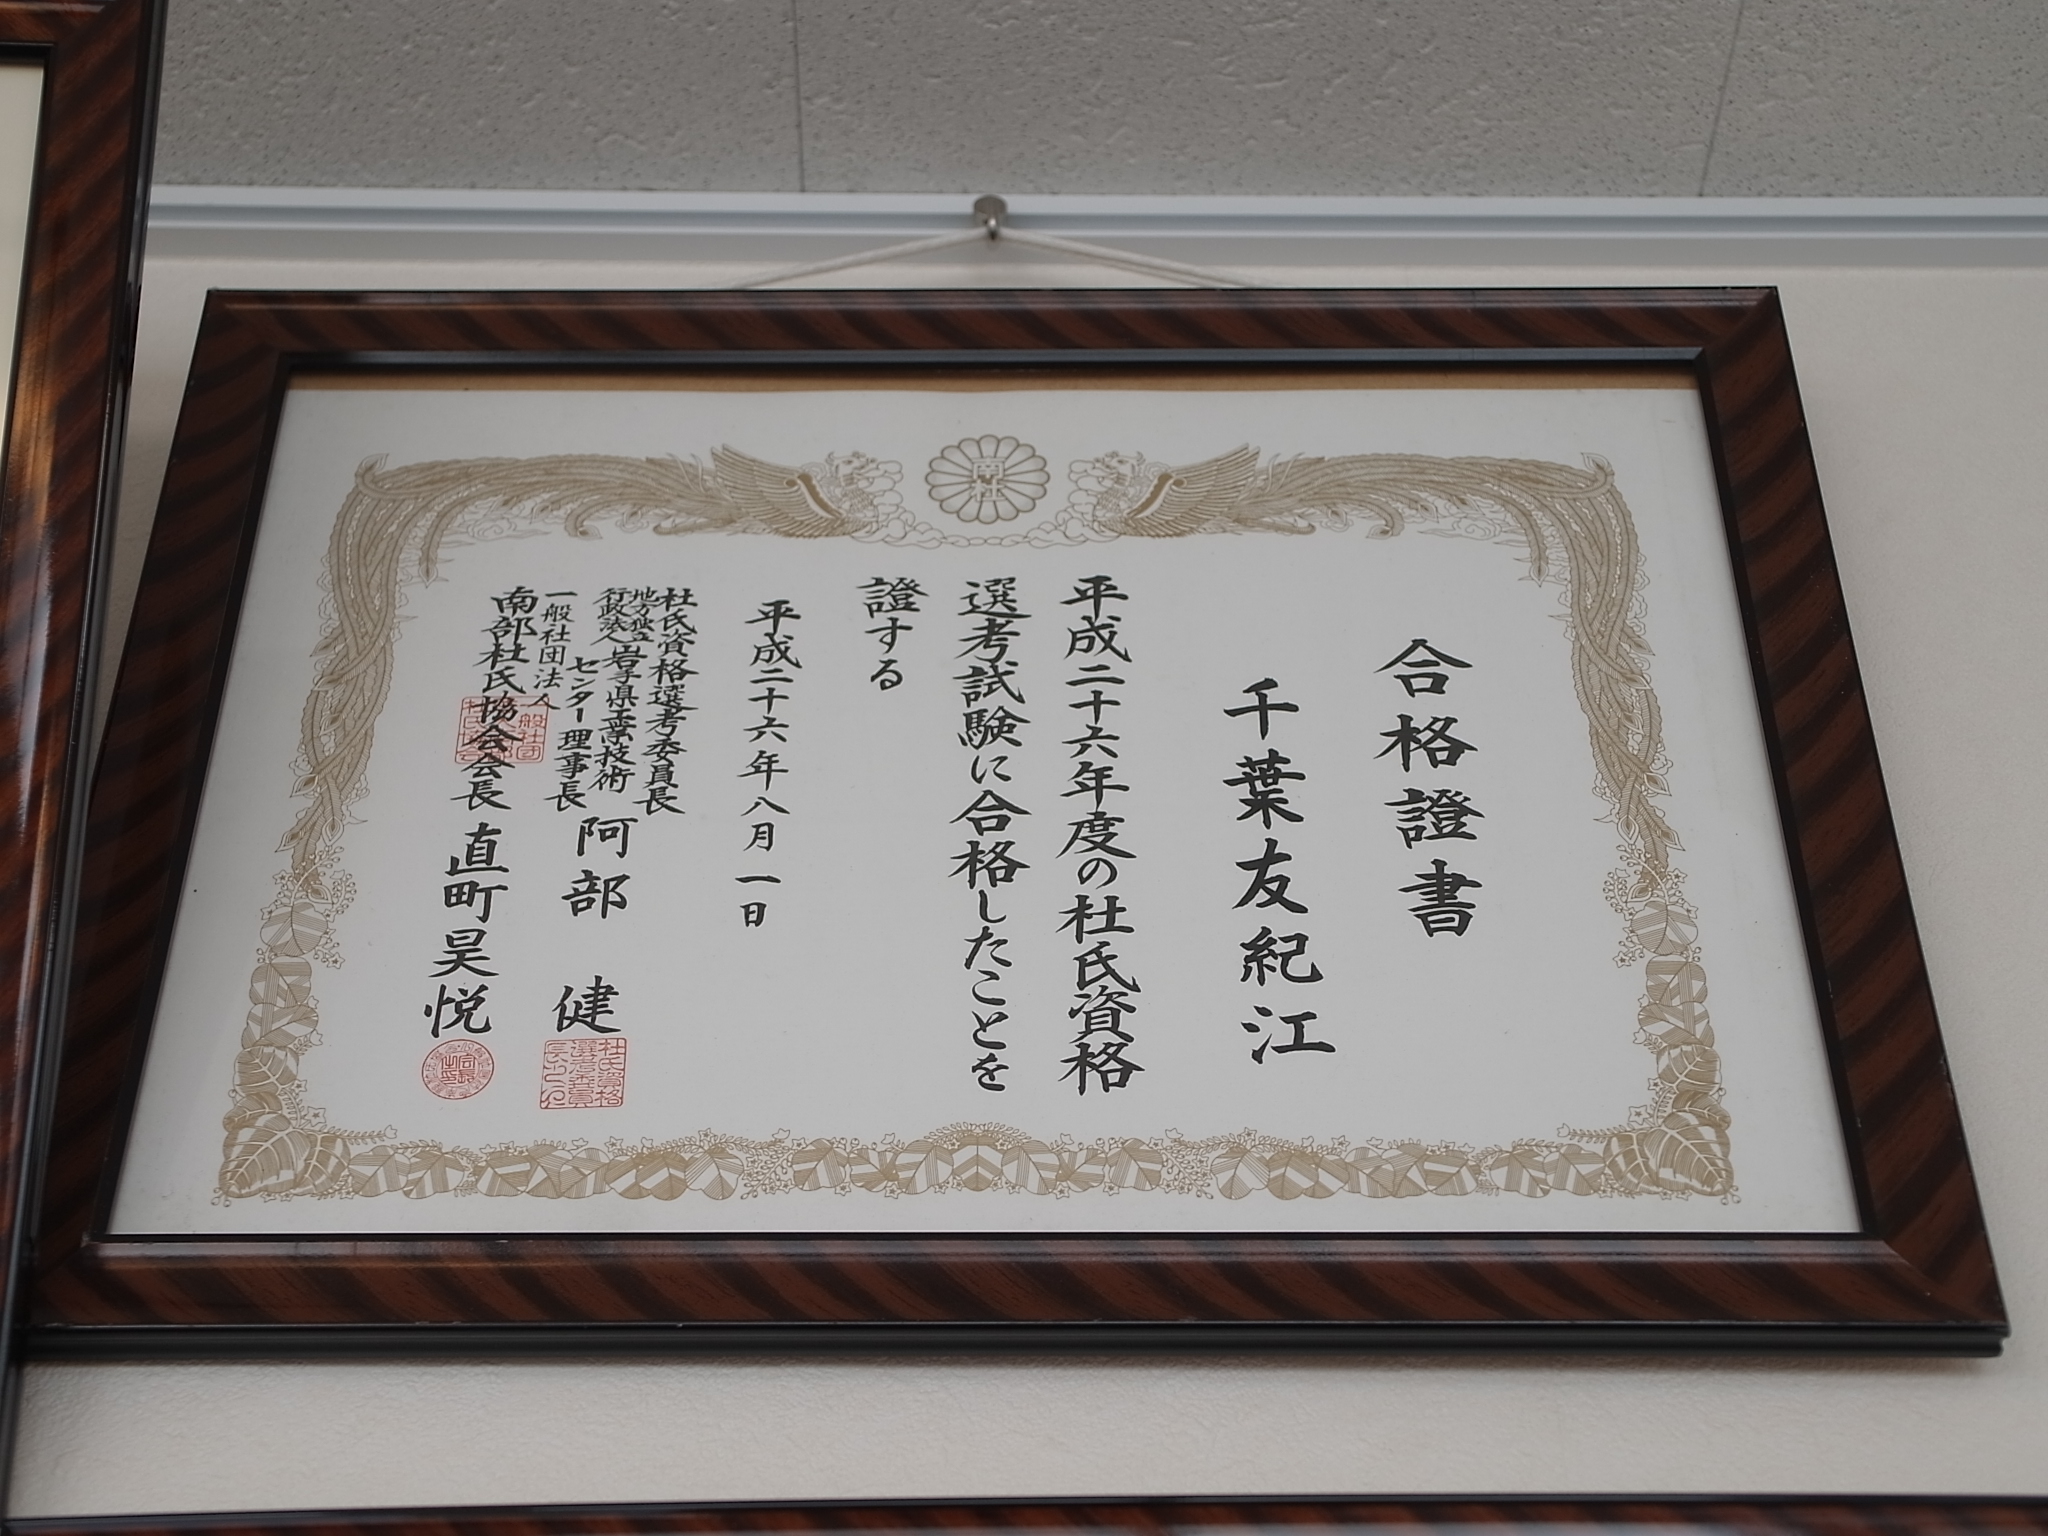 南
杜
合格證書
千葉友紀江
平成二十六年度の杜氏資格
選考試験に合格したことを
證する
平成二十六年八月一日
杜氏資格選考委員長
地方独立
行政法人岩手県工業技術
センター理事長
阿部 健
一般社団法人
南部杜氏協会会長 直町昊悦